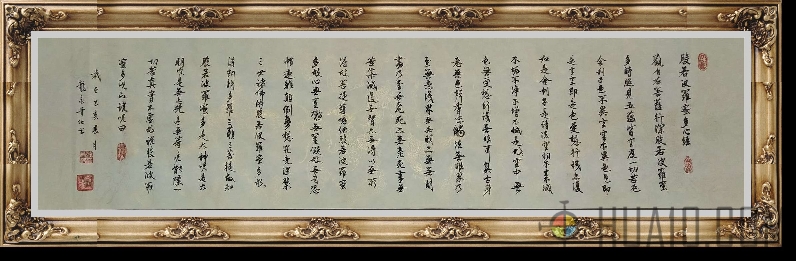 般若波羅蜜多心經
觀自在菩薩行深般若波羅蜜
多時照見五蘊皆空度一切苦厄
舍利子色不異空空不異色色即
是空空即是色受想行識亦復
如是舍利子是諸法空相不生不滅
不垢不淨不增不減是故空中無
色無受想行識無眼耳鼻舌身
意無色聲香味觸法無眼界乃
至無意識界無無明亦無無明
盡乃至無老死亦無老死盡無
苦集滅道無智亦無得以無所
得故菩提薩埵依般若波羅蜜
多故心無罣礙無罣礙故無有恐
怖遠離顛倒夢想究竟涅槃
三世諸佛依般若波羅蜜多故
得阿耨多羅三藐三菩提故知
般若波羅蜜多是大神咒是大
明咒是無上咒是無等等咒能除一
切苦真實不虛故說般若波羅
蜜多咒即說咒曰
HUA10.CO